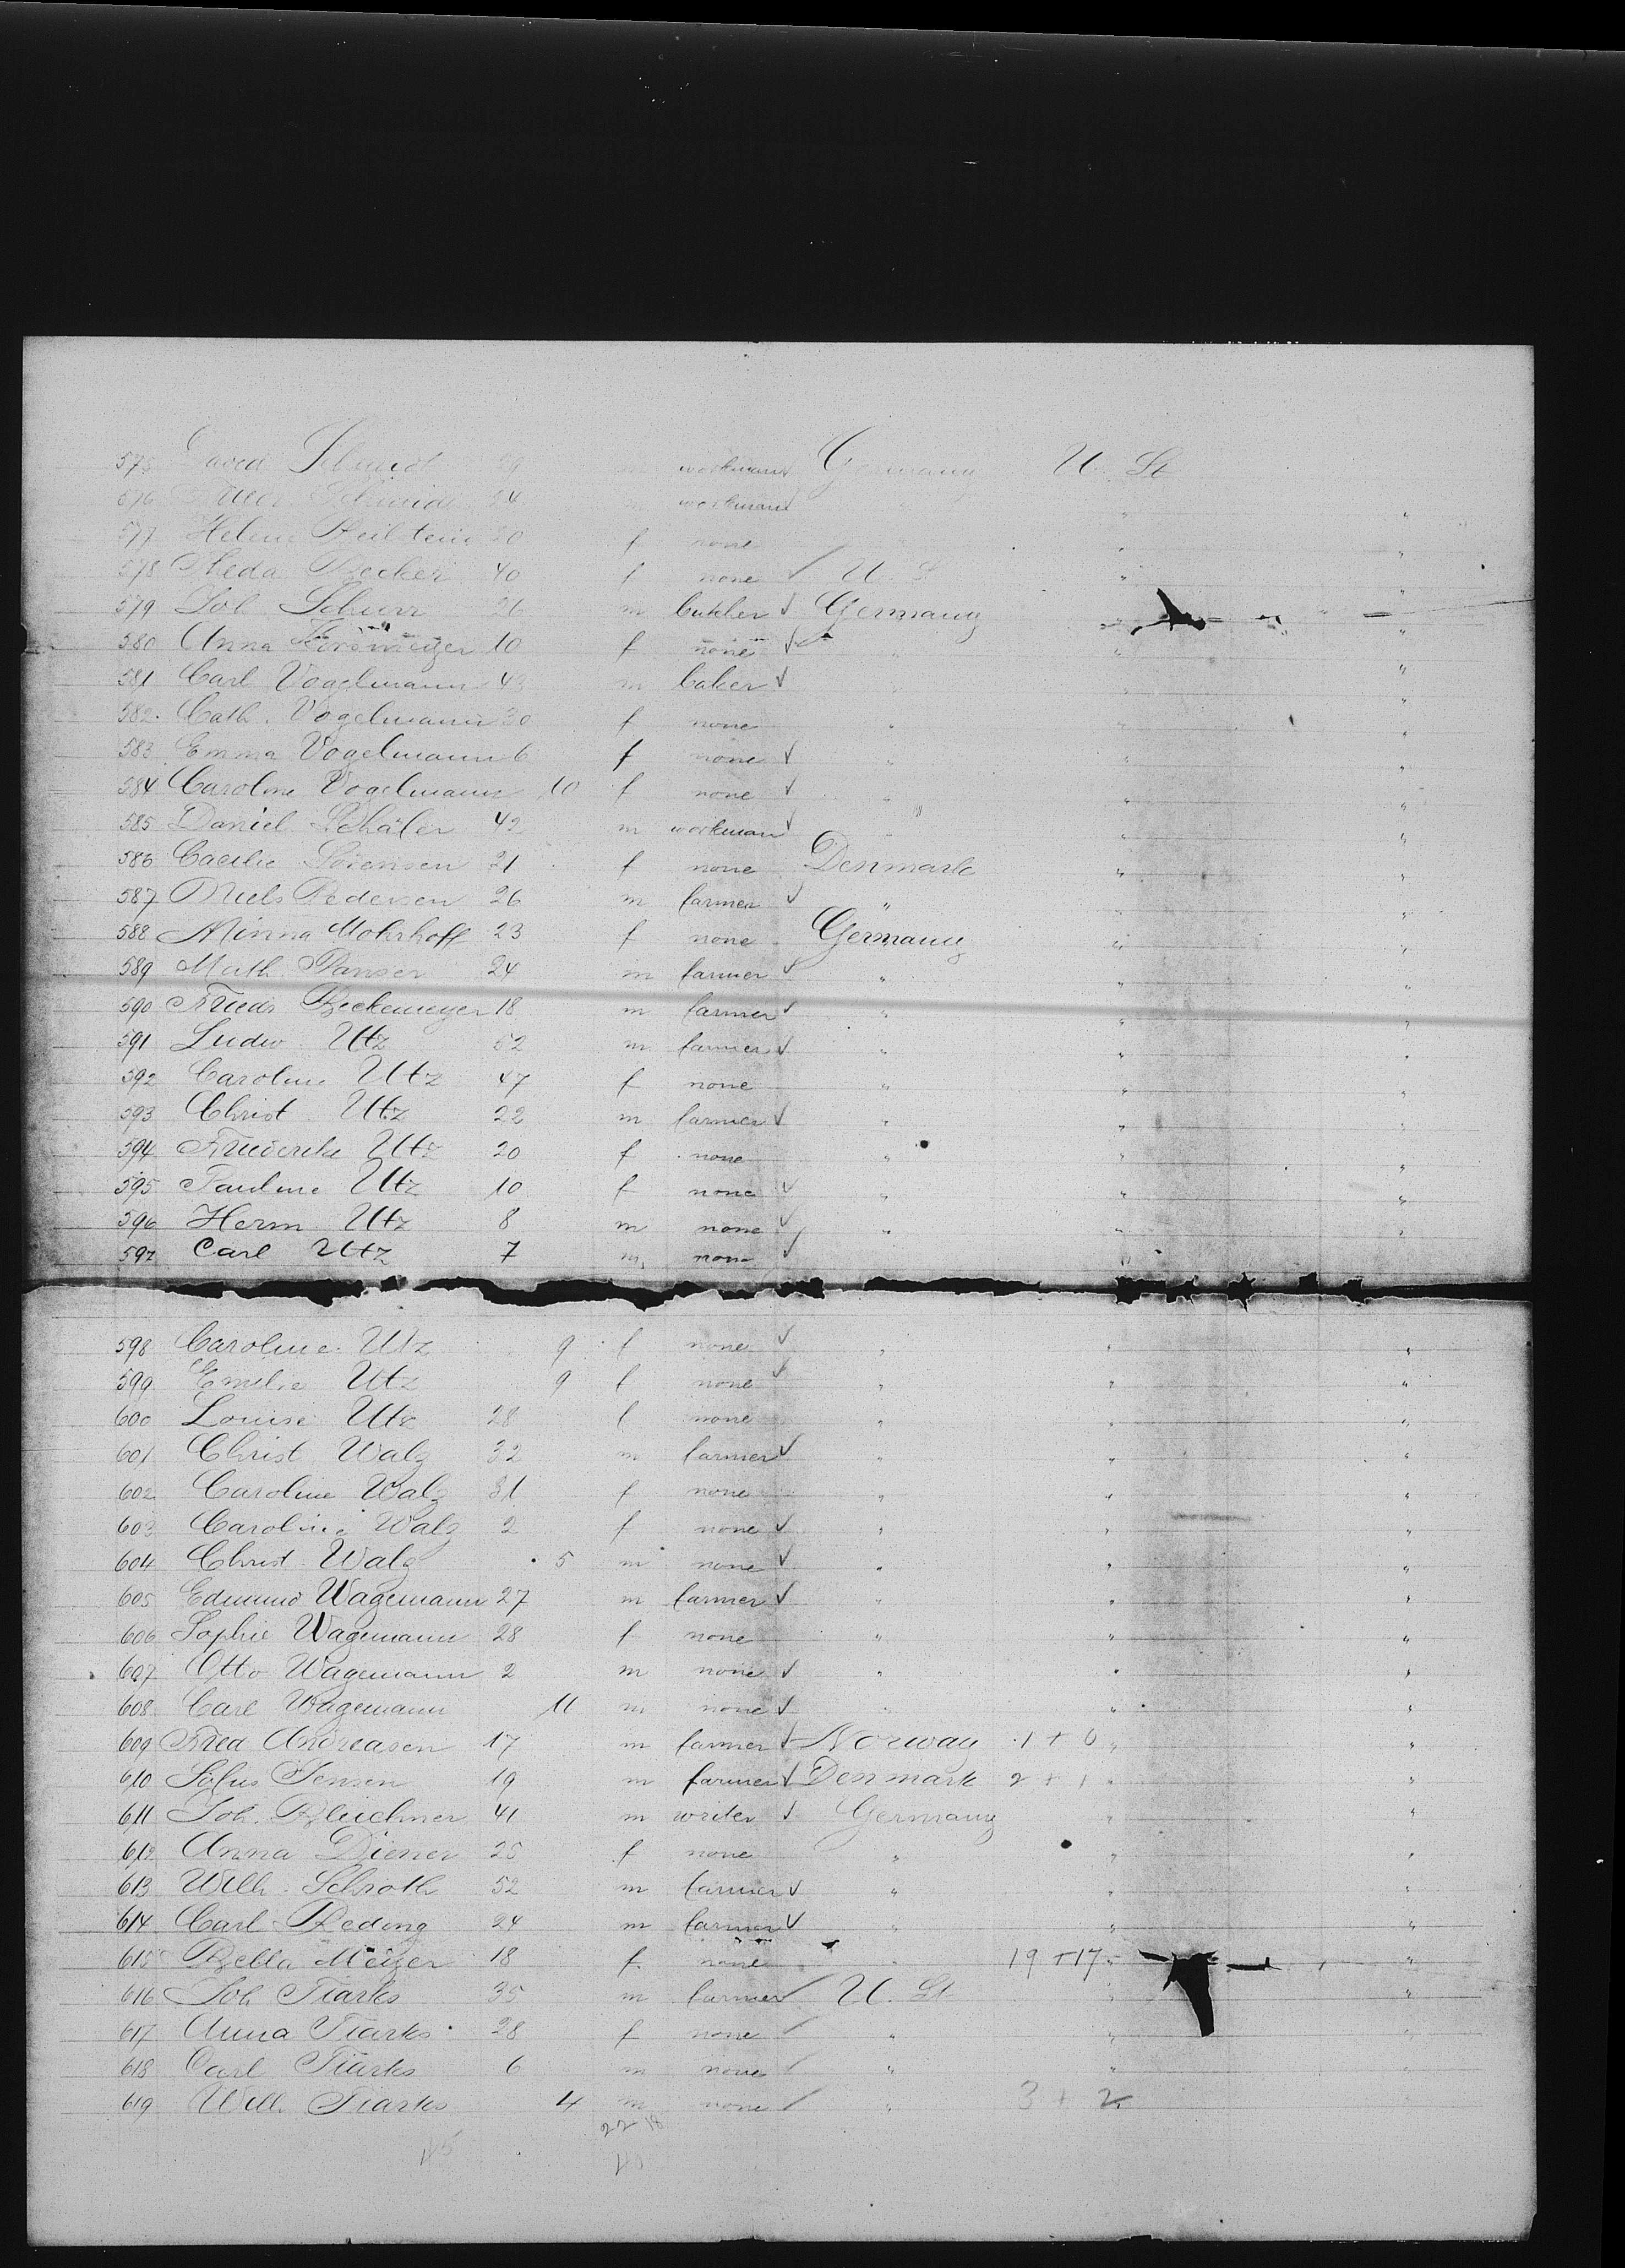 575 David Schmidt 29 workman ✓ Germany U. St
576 Schmidt 24 workman ✓ "
577 Helene Beilstein 20 f none " "
578 Becker 40 f none ✓ U. S " "
579 Joh Schurr 26 m butcher ✓ Germany " "
580 Anna 10 f none ✓ " " "
581 Carl Vogelmann 43 m baker ✓ " " "
582 Cath. Vogelmann 30 f none " " "
583 Emma Vogelmann 6 f none ✓ " " "
584 Caroline Vogelmann 10 f none ✓ " " "
585 Daniel Schäfer 42 m workman ✓ " " "
586 Caecilie Sörensen 21 f none Denmark " "
587 Niels Pedersen 26 m farmer ✓ " " "
588 Minna Mohrhoff 23 f none Germany " "
589 Math. Panser 24 m farmer ✓ " " "
590 Friedr Beckemeyer 18 m farmer ✓ " " "
591 Ludw. Utz 52 m farmer ✓ " " "
592 Caroline Utz 47 f none " " "
593 Christ Utz 22 m farmer ✓ " " "
594 Friederike Utz 20 f none " " "
595 Pauline Utz 10 f none ✓ " " "
596 Herm Utz 8 m none ✓ " " "
597 Carl Utz 7 m none ✓ "
598 Caroline Utz 9 f none ✓ " " "
599 Emilie Utz 9 f none ✓ " " "
600 Louise Utz 28 f none " " "
601 Christ Walz 32 m farmer ✓ " " "
602 Caroline Walz 31 f none " " "
603 Caroline Walz 2 f none ✓ " " "
604 Christ Walz 5 m none ✓ " " "
605 Edmund Wagemann 27 m farmer ✓ " " "
606 Sophie Wagemann 28 f none " " "
607 Otto Wagemann 2 m none ✓ " " "
608 Carl Wagemann 11 m none ✓ " " "
609 Fred Andreasen 17 m farmer ✓ Norway 1 + 0 " "
610 Sofus Jensen 19 m farmer ✓ Denmark 2 + 1 " "
611 Joh. Bleichner 41 m writer ✓ Germany " "
612 Anna Diener 25 f none " " "
613 Wilh. Schroth 52 m farmer ✓ " " "
614 Carl Reding 24 m farmer ✓ " " "
615 Bella Meizer 18 f none " 19 + 17 " "
616 Joh Tiarks 35 m farmer ✓ U. St " "
617 Anna Tiarks 28 f none ✓ " " "
618 Carl Tiarks 6 m none ✓ " " "
619 Wilh. Tiarks 4 m none ✓ " 3 + 2
22 18